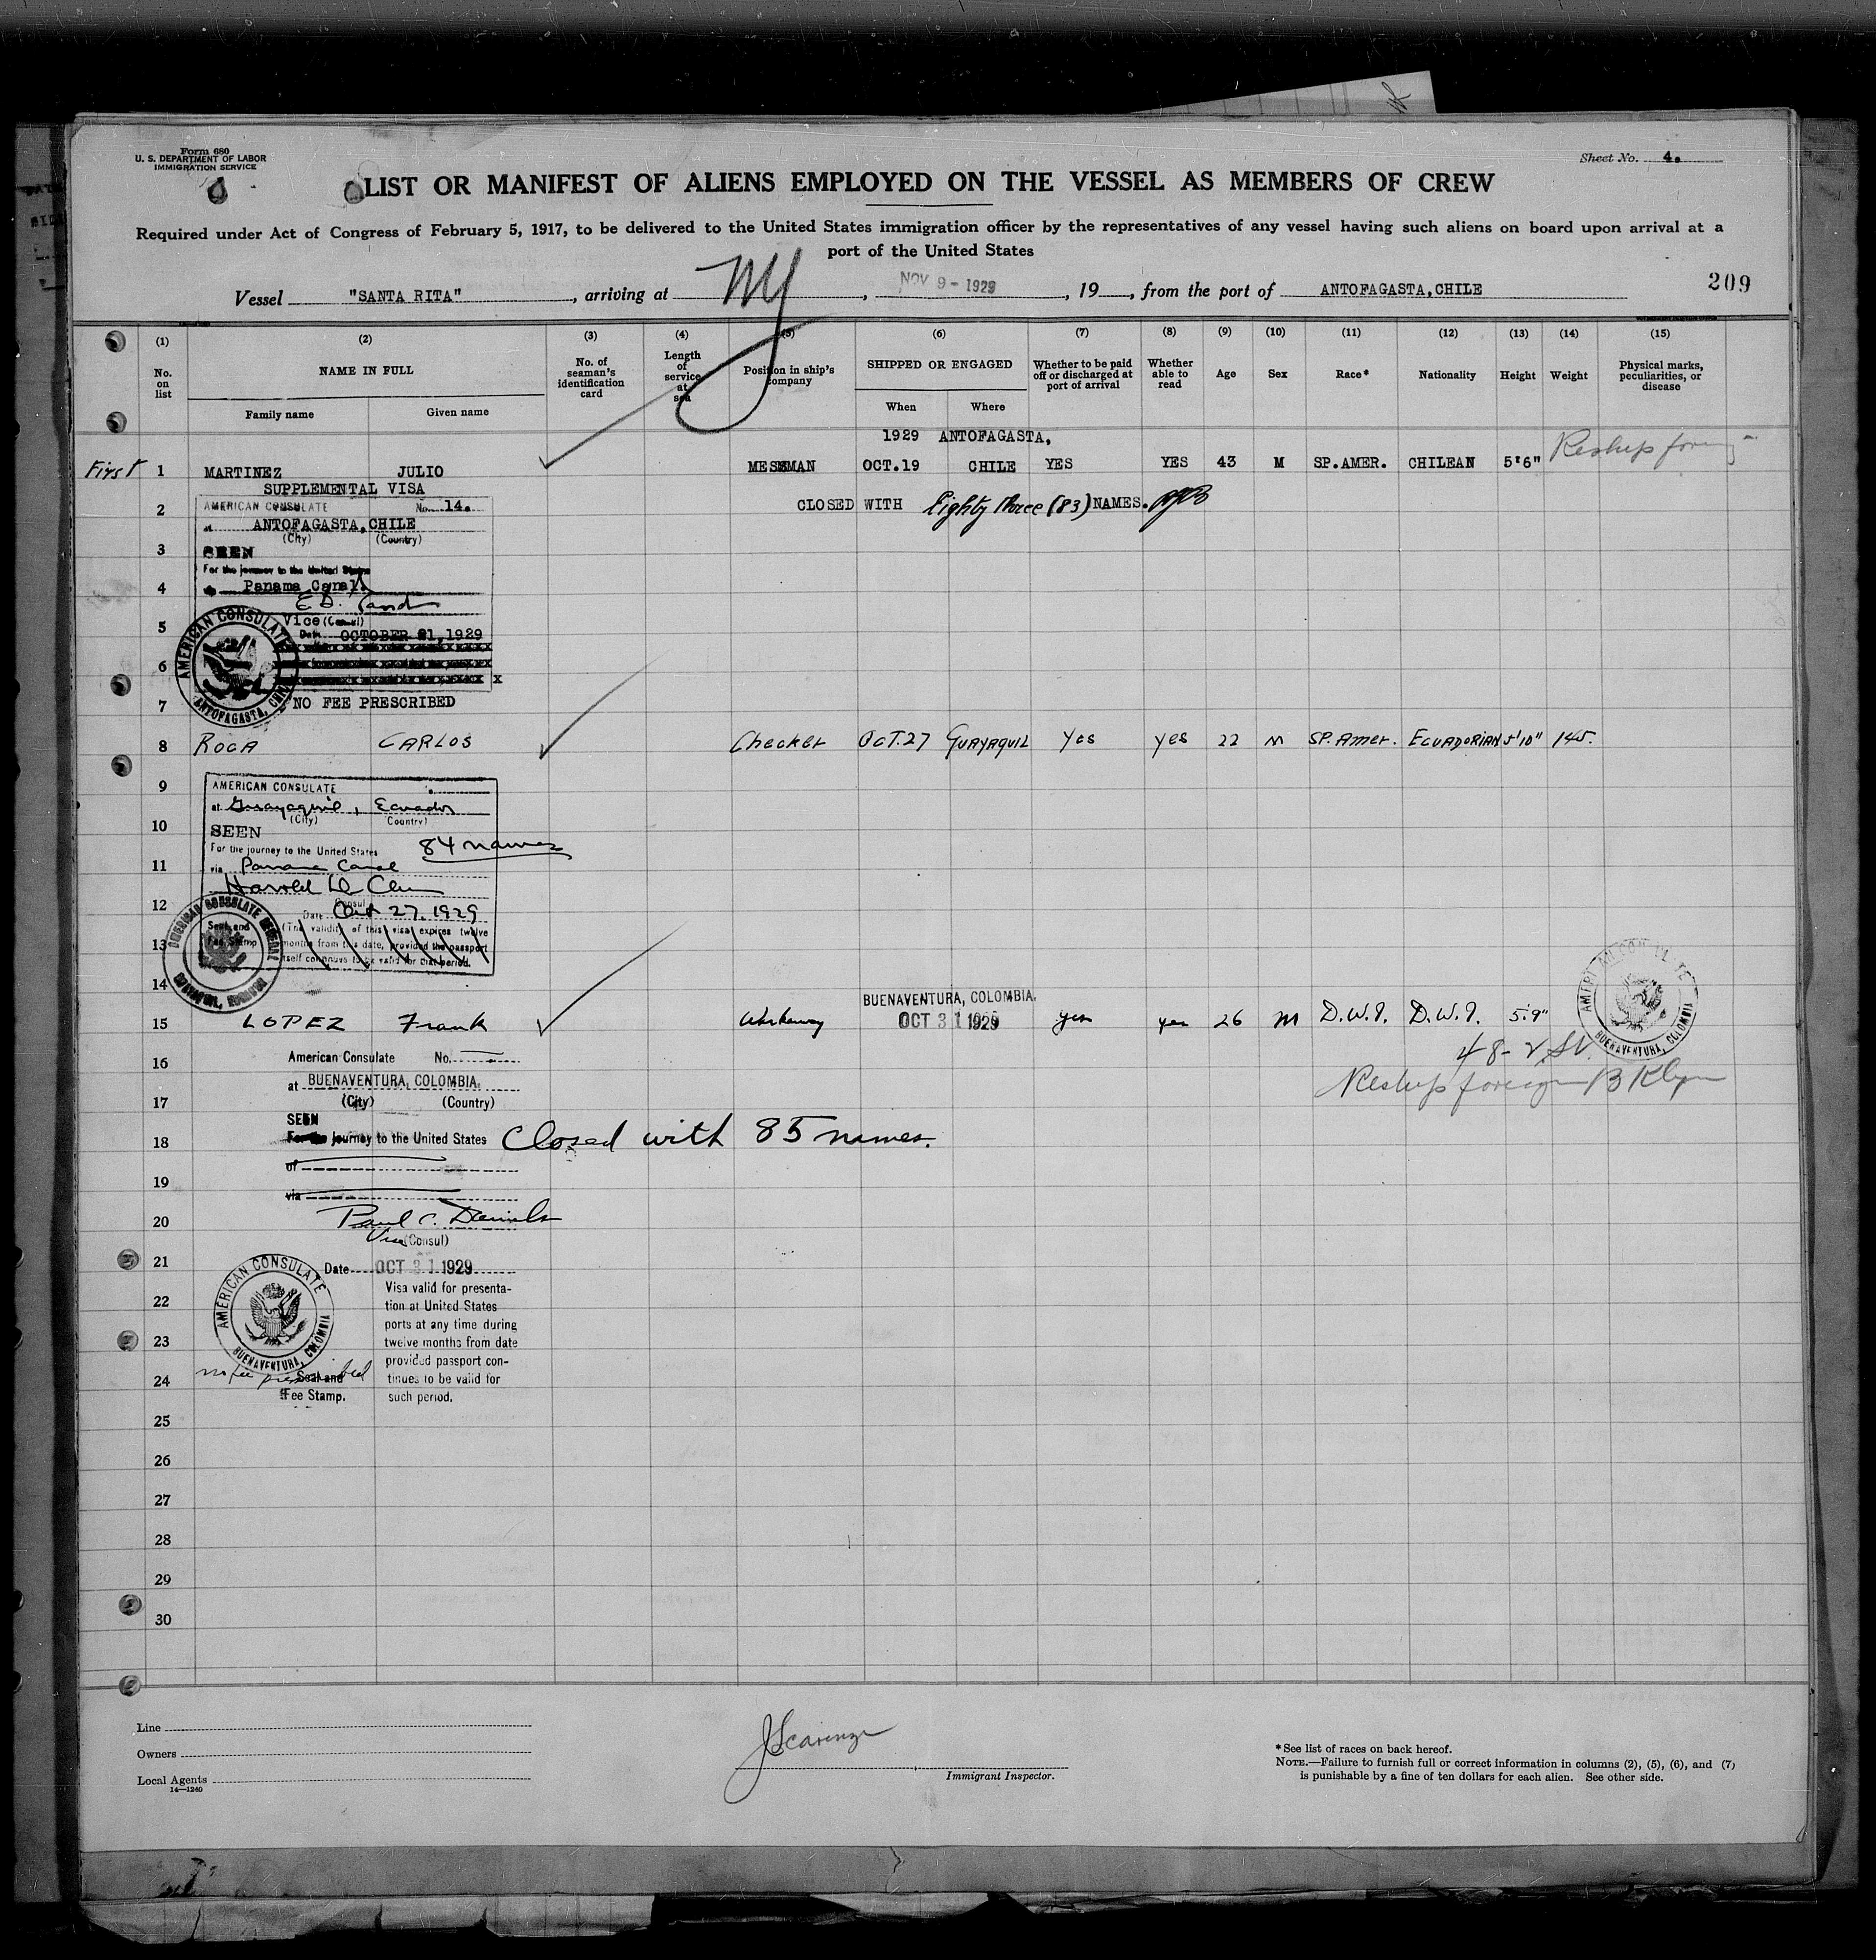 Form 680
U. S. DEPARTMENT OF LABOR
IMMIGRATION SERVICE
Sheet No. 4.
LIST OR MANIFEST OF ALIENS EMPLOYED ON THE VESSEL AS MEMBERS OF CREW
Required under Act of Congress of February 5, 1917, to be delivered to the United States immigration officer by the representatives of any vessel having such aliens on board upon arrival at a
port of the United States
Vessel "SANTA RITA", arriving at NY, NOV 9 - 1929, 19__, from the port of ANTOFAGASTA, CHILE
209
(1) (2) (3) (4) (5) (6) (7) (8) (9) (10) (11) (12) (13) (14) (15)
No. on list NAME IN FULL No. of seaman's identification card Length of service at sea Position in ship's company SHIPPED OR ENGAGED Whether to be paid off or discharged at port of arrival Whether able to read Age Sex Race* Nationality Height Weight Physical marks, peculiarities, or disease
Family name Given name When Where
1929 ANTOFAGASTA,
First 1 MARTINEZ JULIO MESSMAN OCT.19 CHILE YES YES 43 M SP.AMER. CHILEAN 5'6" Reship foreign
SUPPLEMENTAL VISA
2 AMERICAN CONSULATE No. 14. CLOSED WITH Eighty three (83) NAMES.
at ANTOFAGASTA, CHILE
(City) (Country)
3 SEEN
For the journey to the United States
4 Panama Canal
Vice (Consul)
5 Date OCTOBER 21, 1929
AMERICAN CONSULATE
ANTOFAGASTA, CHILE
6
7 NO FEE PRESCRIBED
8 ROCA CARLOS Checker OCT.27 GUAYAQUIL Yes yes 22 M SP. Amer. ECUADORIAN 5'10" 145.
9 AMERICAN CONSULATE
at Guayaquil, Ecuador
(City) Country)
10 SEEN
For the journey to the United States 84 names
11 via Panama Canal
Harold D. Clum
Consul
12 Date Oct 27, 1929
(The validity of this visa expires twelve
13 months from this date, provided the passport
itself continues to be valid for that period.
Seal and
Fee Stamp
AMERICAN CONSULATE GENERAL
GUAYAQUIL, ECUADOR
14
BUENAVENTURA, COLOMBIA.
15 LOPEZ Frank Workaway OCT 31 1929 yes yes 26 M D.W.I. D.W.I. 5.9"
AMERICAN CONSULATE
BUENAVENTURA, COLOMBIA
American Consulate No.
48-2 St.
16
at BUENAVENTURA, COLOMBIA.
Reship foreign BKlyn
17 (City) (Country)
SEEN
18 For the journey to the United States Closed with 85 names.
of
19
via
20 Paul C. Daniels
Vice (Consul)
21 Date OCT 31 1929
AMERICAN CONSULATE
BUENAVENTURA, COLOMBIA
Visa valid for presenta-
22 tion at United States
ports at any time during
23 twelve months from date
provided passport con-
24 no fee prescribed Seal and tinues to be valid for
Fee Stamp. such period.
25
26
27
28
29
30
Line
Owners
Local Agents
14—1240
Immigrant Inspector.
*See list of races on back hereof.
NOTE.—Failure to furnish full or correct information in columns (2), (5), (6), and (7)
is punishable by a fine of ten dollars for each alien. See other side.